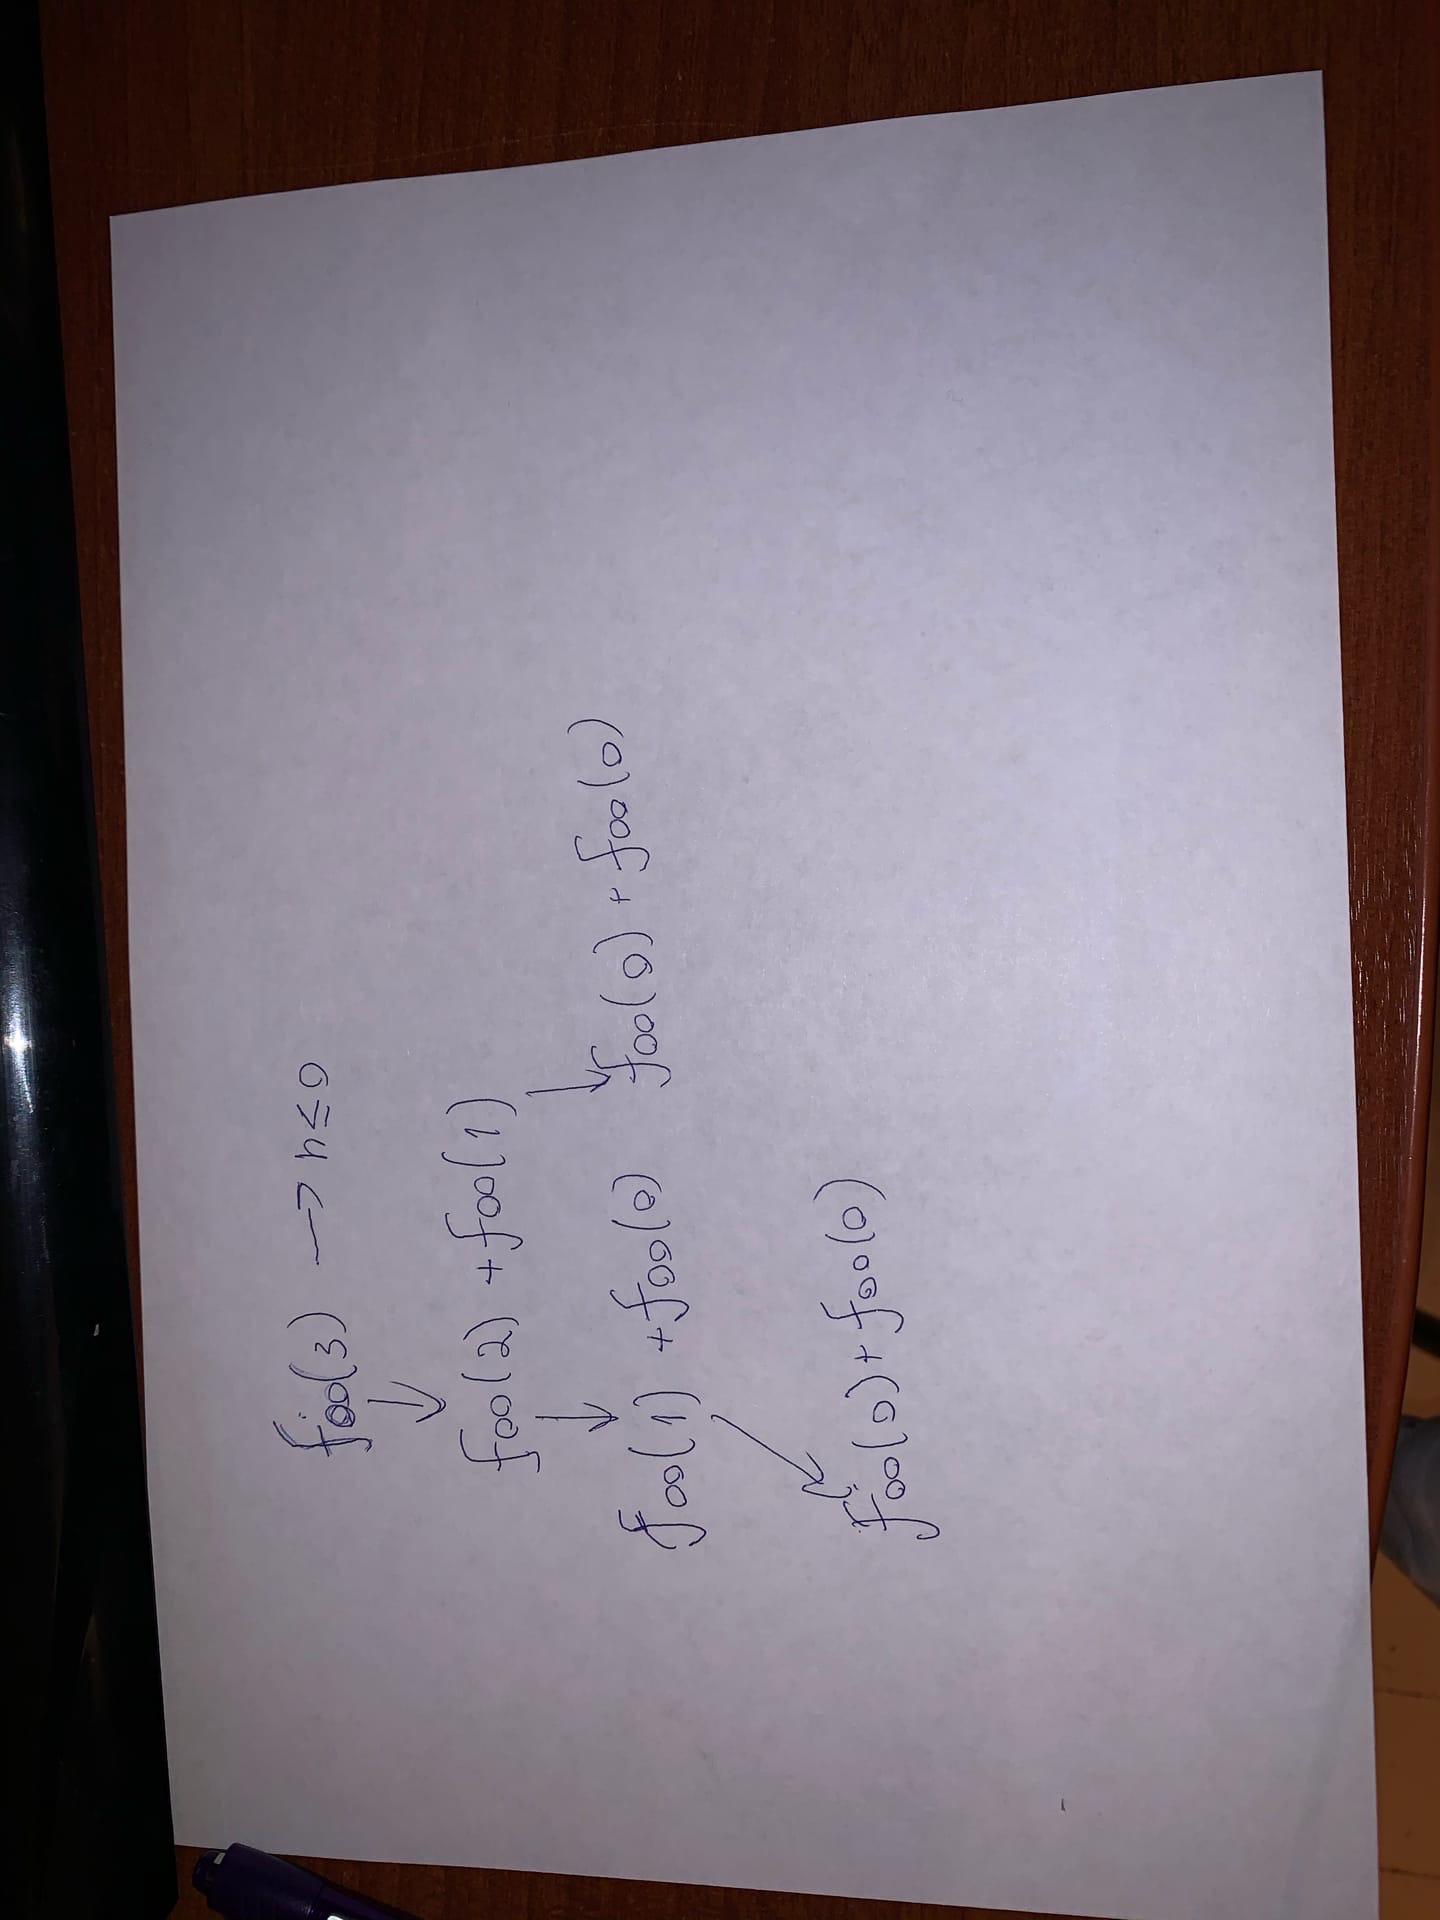 foo(3) → n ≤ 0
foo(2) + foo(1)
foo(1) + foo(0) foo(0) + foo(0)
foo(0) + foo(0)